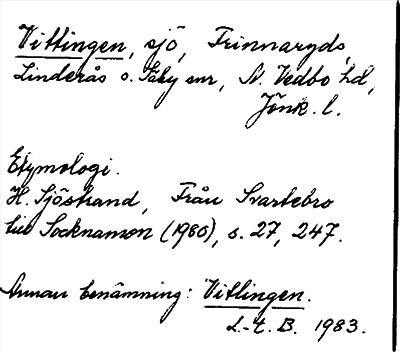 Vittingen, sjö, Frinnaryds,
Linderås o. Säby snr, N. Vedbo hd,
Jönk. l.
Etymologi.
H. Sjöstrand, Från Svartebro
till Socknamon (1980), s. 27, 247.
Annan benämning: Vitlingen.
L-t. B. 1983.